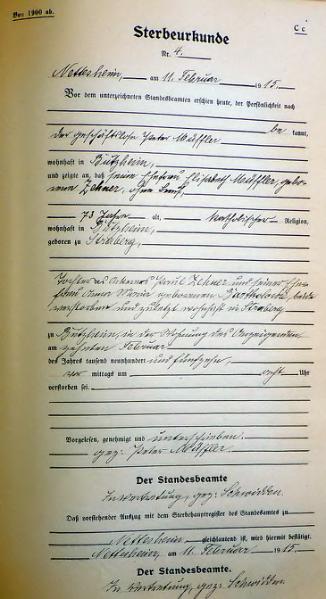 Vor 1900 ab.
C c
Sterbeurkunde
Nr. 4.
Nettesheim, am 11. Februar 1915.
Vor dem unterzeichneten Standesbeamten erschien heute, der Persönlichkeit nach
be kannt,
der geschäftslose Peter Müffler
wohnhaft in Bützheim,
und zeigte an, daß seine Ehefrau Elisabeth Müffler, gebo-
rene Zehner, ohne Beruf,
73 Jahre alt, katholischer Religion,
wohnhaft in Bützheim,
geboren zu Straberg,
Tochter des Ackerers Paul Zehner und seiner Ehe-
frau Anna Maria geborenen beide
verstorben und zuletzt wohnhaft in Straberg
zu Bützheim, in der Wohnung des Anzeigenden
am zehnten Februar
des Jahres tausend neunhundert und fünfzehn,
vor mittags um acht Uhr
verstorben sei.
Vorgelesen, genehmigt und unterschrieben.
gez. Peter Müffler.
Der Standesbeamte
In Vertretung, gez. Schwidden.
Daß vorstehender Auszug mit dem Sterbehauptregister des Standesamts zu
Nettesheim gleichlautend ist, wird hiermit bestätigt.
Nettesheim, am 11. Februar 1915.
Der Standesbeamte.
In Vertretung, gez. Schwidden.